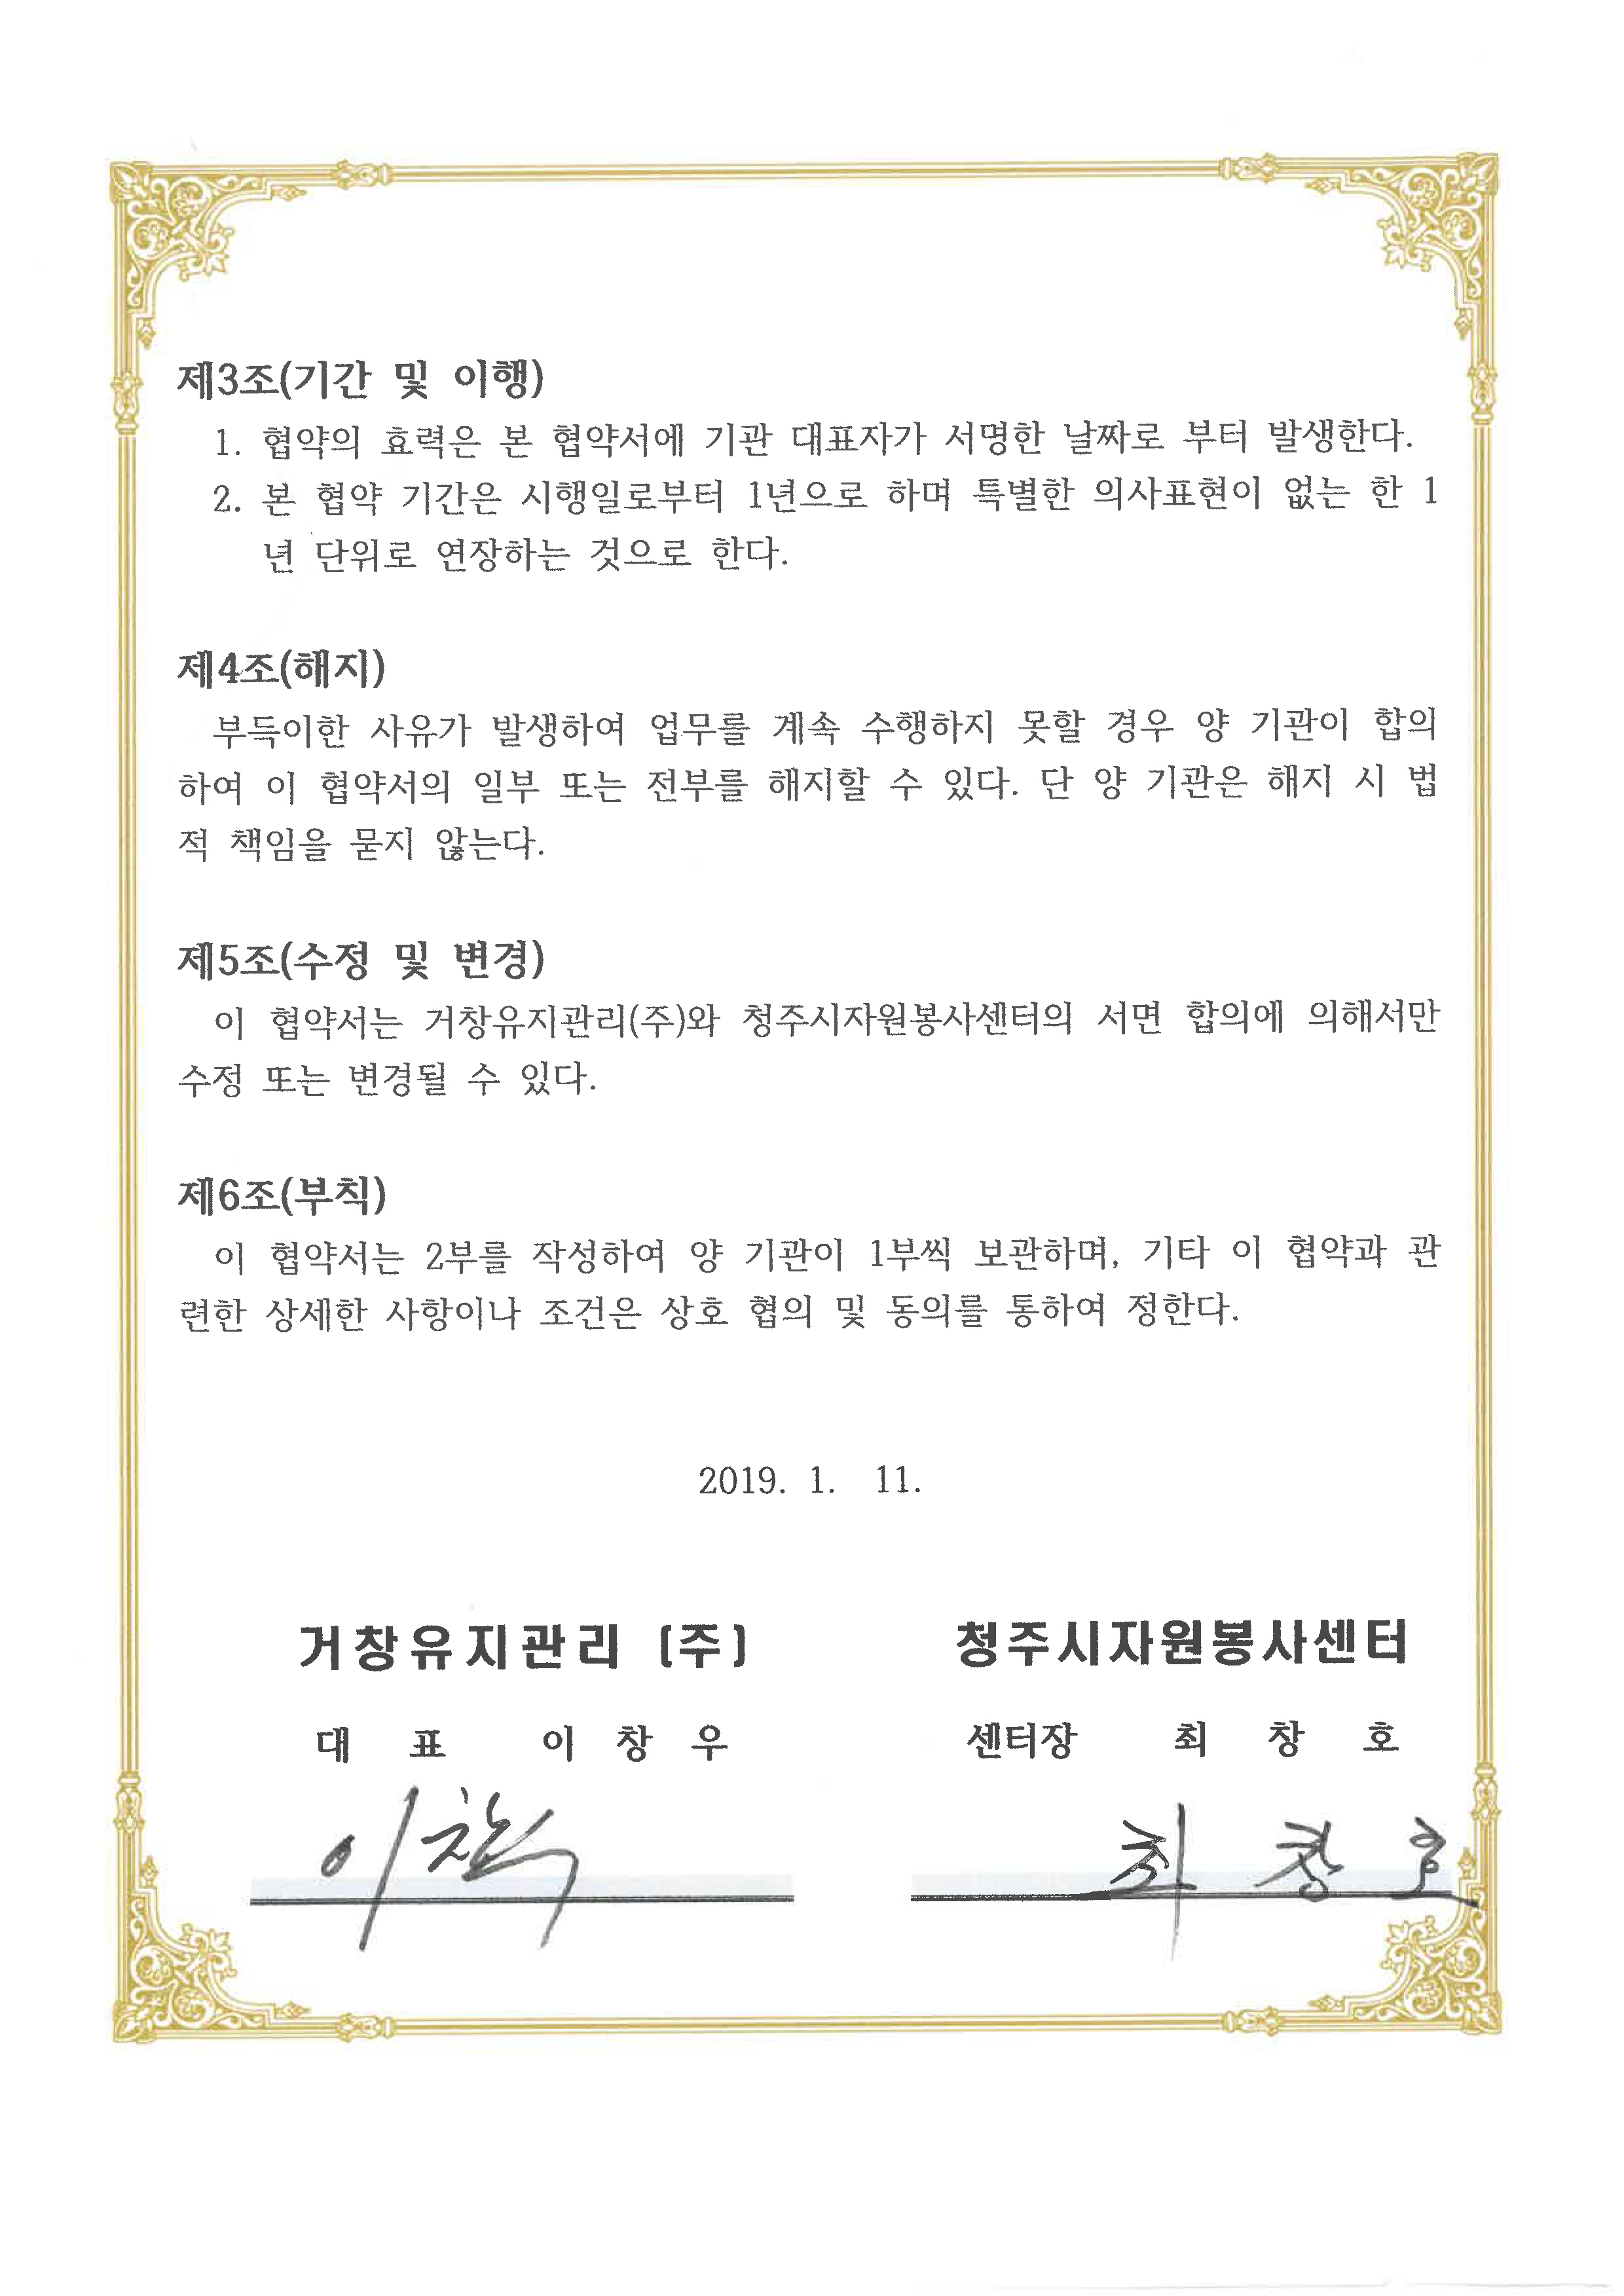 제3조(기간 및 이행)
1. 협약의 효력은 본 협약서에 기관 대표자가 서명한 날짜로 부터 발생한다.
2. 본 협약 기간은 시행일로부터 1년으로 하며 특별한 의사표현이 없는 한 1
년 단위로 연장하는 것으로 한다.
제4조(해지)
부득이한 사유가 발생하여 업무를 계속 수행하지 못할 경우 양 기관이 합의
하여 이 협약서의 일부 또는 전부를 해지할 수 있다. 단 양 기관은 해지 시 법
적 책임을 묻지 않는다.
제5조(수정 및 변경)
이 협약서는 거창유지관리(주)와 청주시자원봉사센터의 서면 합의에 의해서만
수정 또는 변경될 수 있다.
제6조(부칙)
이 협약서는 2부를 작성하여 양 기관이 1부씩 보관하며, 기타 이 협약과 관
련한 상세한 사항이나 조건은 상호 협의 및 동의를 통하여 정한다.
2019. 1. 11.
거창유지관리 (주) 청주시자원봉사센터
대 표 이 창 우 센터장 최 창 호
이창우 최 창 호